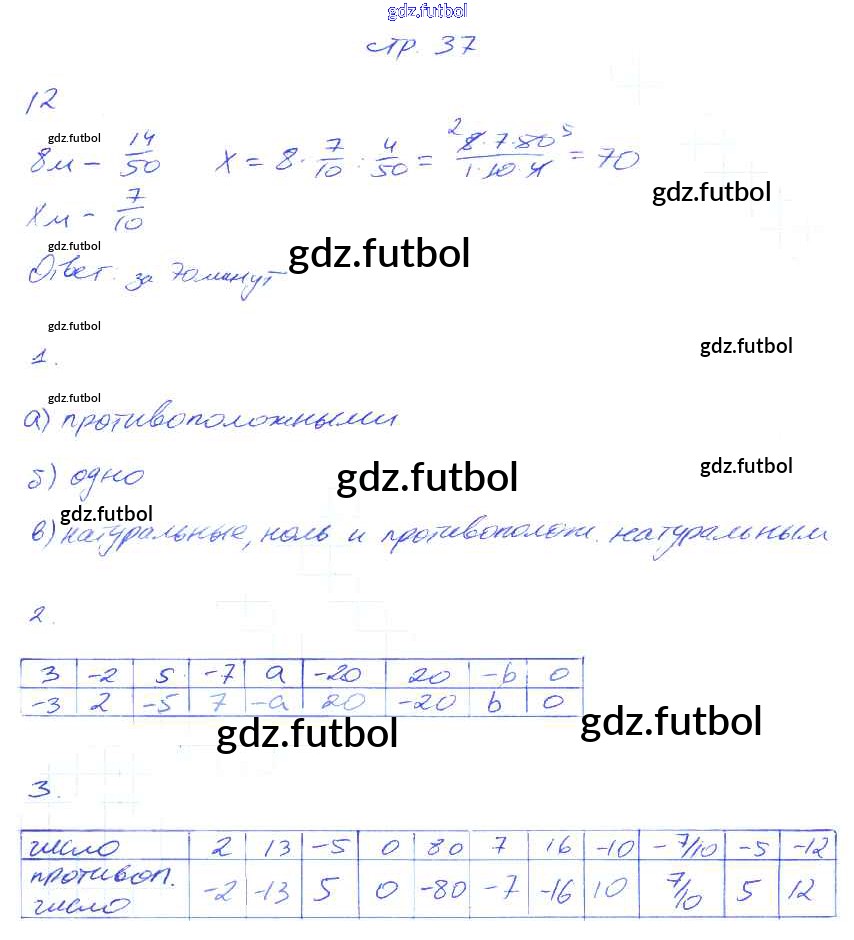 gdz.futbol
стр. 37
12
gdz.futbol
8м - 14/50 x = 8 · 7/10 : 4/50 = 8·7·80/1·10·4 = 70
2 5
gdz.futbol
xм - 7/10
gdz.futbol
gdz.futbol
Ответ: за 70 минут
gdz.futbol
1.
gdz.futbol
gdz.futbol
а) противоположными
б) одно
gdz.futbol
gdz.futbol
gdz.futbol
в) натуральные, ноль и противополож. натуральным
2.
3 -2 5 -7 a -20 20 -b 0
-3 2 -5 7 -a 20 -20 b 0
gdz.futbol
gdz.futbol
3.
число 2 13 -5 0 80 7 16 -10 -7/10 -5 -12
противоп. число -2 -13 5 0 -80 -7 -16 10 7/10 5 12